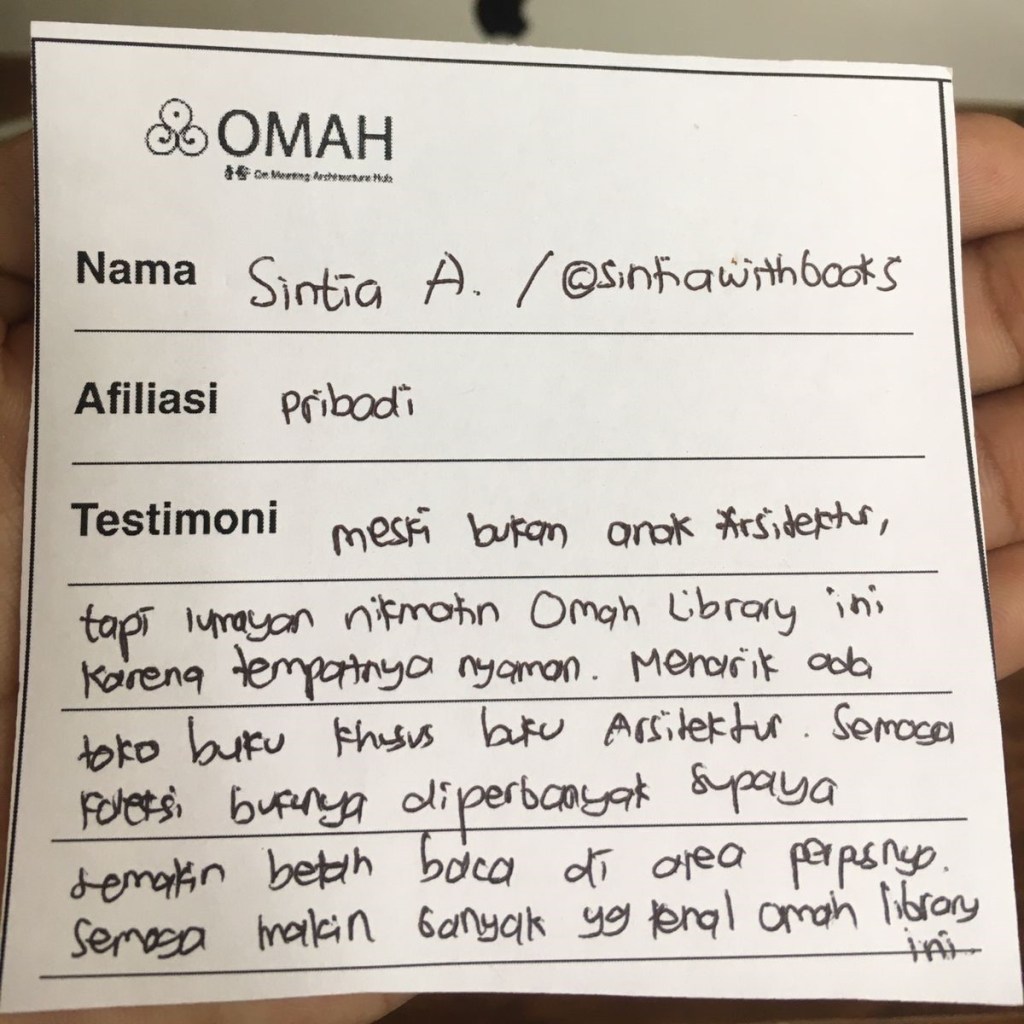 OMAH
On Meaning Architecture Hub
Nama Sintia A. / @sintiawithbooks
Afiliasi Pribadi
Testimoni meski bukan anak Arsitektur,
tapi lumayan nikmatin Omah Library ini
karena tempatnya nyaman. Menarik ada
toko buku khusus buku Arsitektur. Semoga
koleksi bukunya diperbanyak supaya
semakin betah baca di area perpusnya.
Semoga makin banyak yg kenal omah library
ini